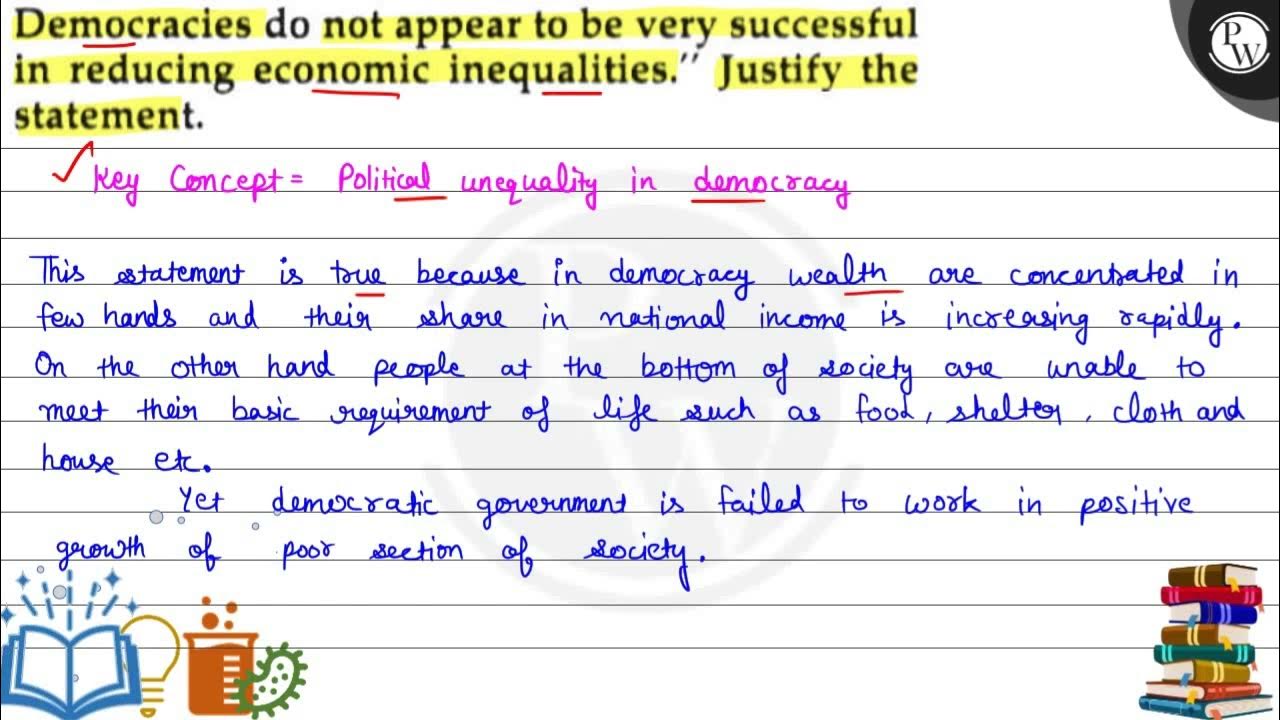 Democracies do not appear to be very successful
in reducing economic inequalities." Justify the
statement.
PW
Key Concept = Political unequality in democracy
This statement is true because in democracy wealth are concentrated in
few hands and their share in national income is increasing rapidly.
On the other hand people at the bottom of society are unable to
meet their basic requirement of life such as food, shelter, cloth and
house etc.
Yet democratic government is failed to work in positive
growth of poor section of society.